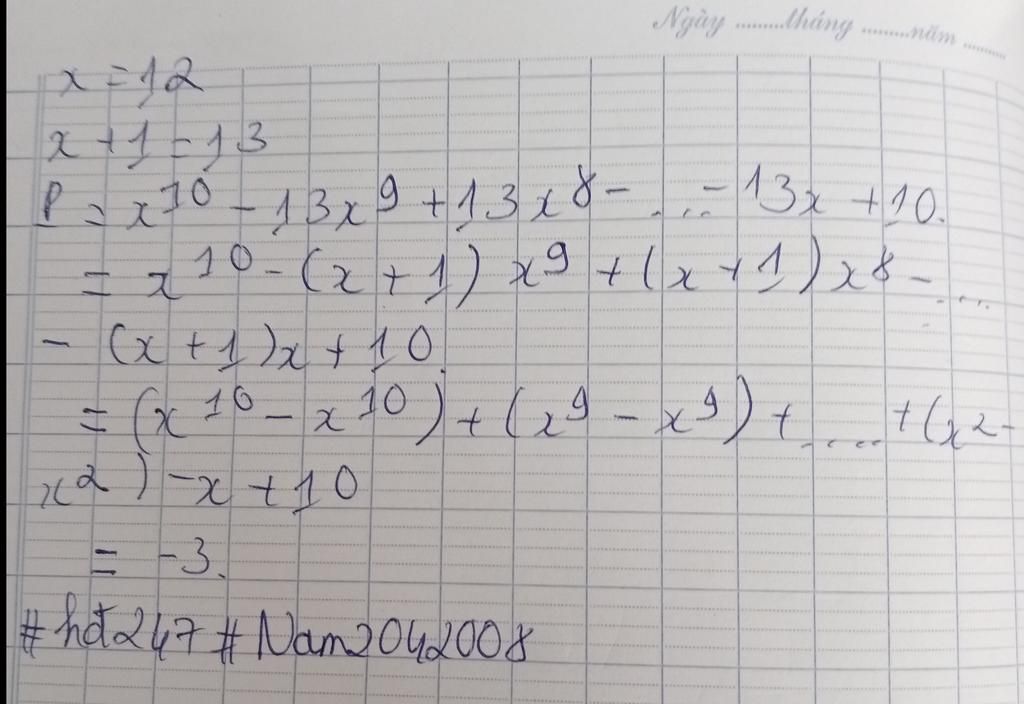 Ngày .........tháng .........năm ........
x = 12
x + 1 = 13
P = x¹⁰ - 13x⁹ + 13x⁸ - ... - 13x + 10.
= x¹⁰ - (x + 1) x⁹ + (x + 1) x⁸ - ....
- (x + 1)x + 10
= (x¹⁰ - x¹⁰) + (x⁹ - x⁹) + .... + (x² -
x²) - x + 10
= -3.
#hđ247 #Nam2042008